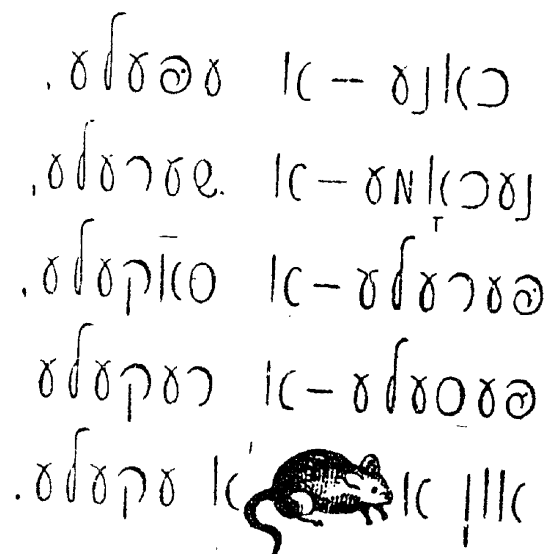 כאנע – א עפּעלע,
נעכאָמע – א שערעלע,
פּערעלע – א סאקעלע,
פּעסעלע – א רעקעלע
און א א עקעלע.